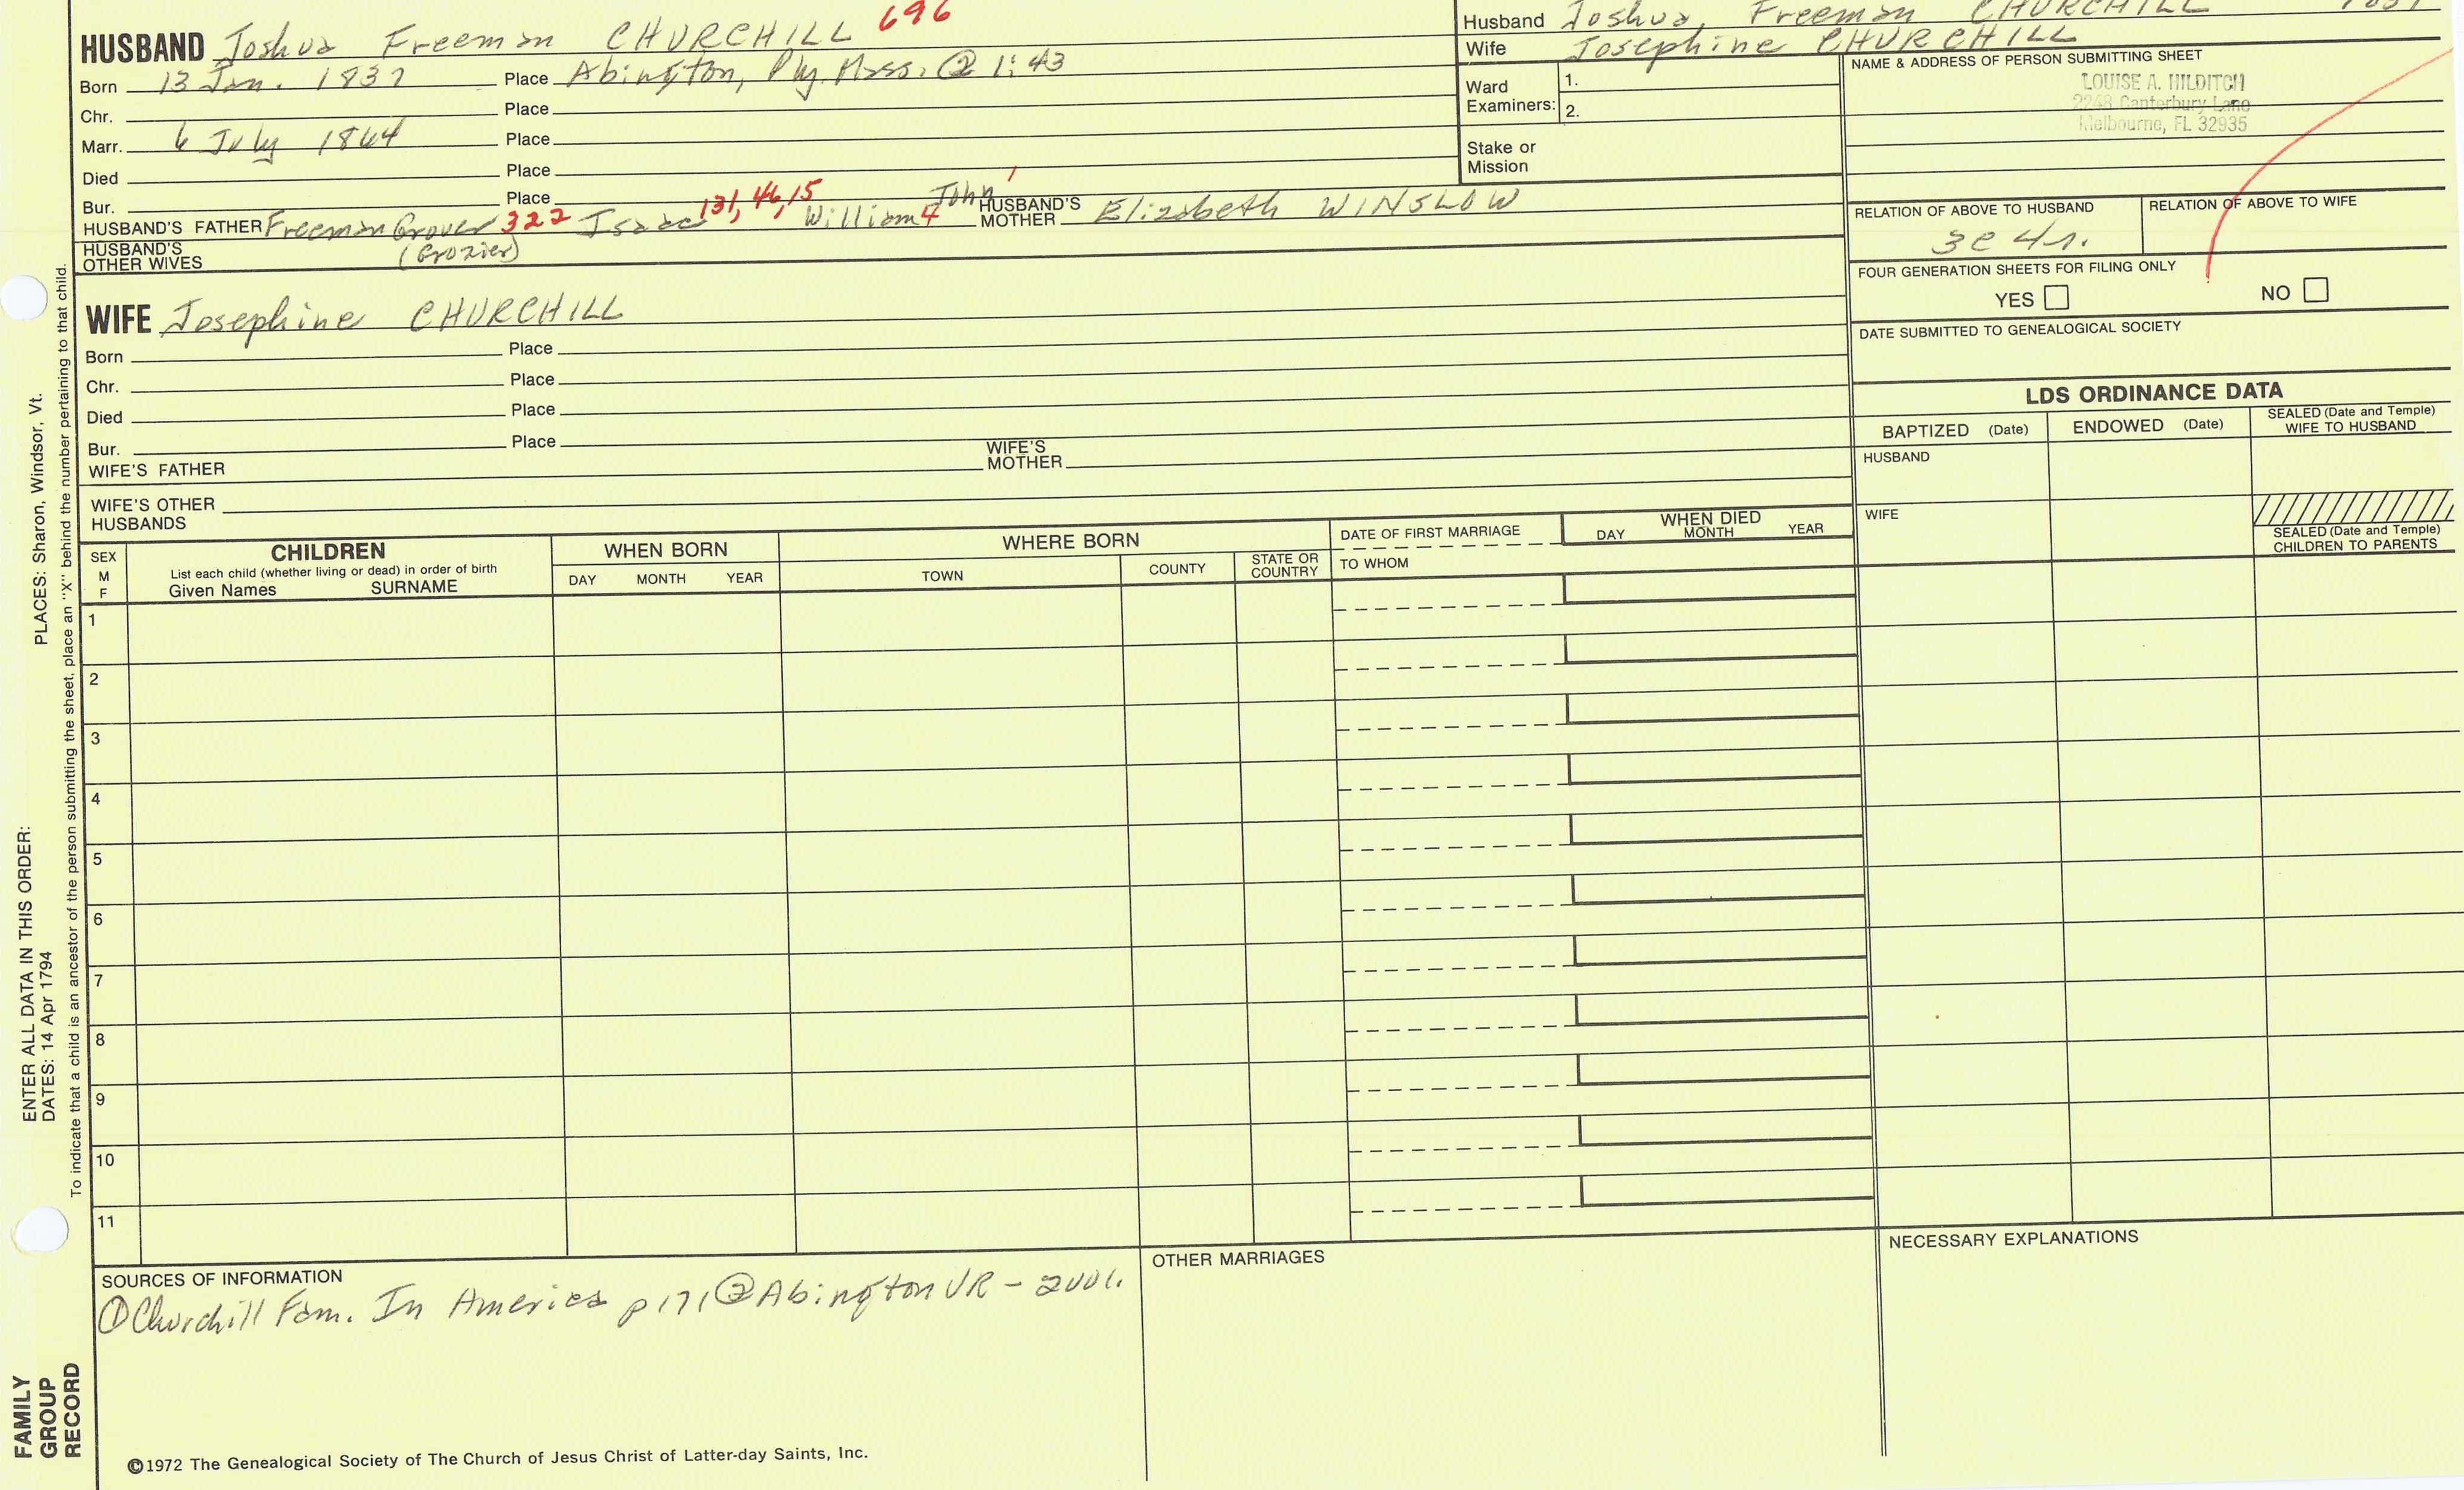 HUSBAND Joshua Freeman CHURCHILL 696
Born 13 Jan. 1837 Place Abington, Ply. Mass. @ 1:43
Chr. Place
Marr. 6 July 1864 Place
Died Place
Bur. Place
HUSBAND'S FATHER Freeman Grover 322 Isaac 131, 46, 15 William 4 John 1 HUSBAND'S MOTHER Elizabeth WINSLOW
(Grozier)
HUSBAND'S OTHER WIVES
Husband Joshua, Freeman CHURCHILL
Wife Josephine CHURCHILL
Ward Examiners: 1.
2.
Stake or Mission
NAME & ADDRESS OF PERSON SUBMITTING SHEET
LOUISE A. HILDITCH
2248 Canterbury Lane
Melbourne, FL 32935
RELATION OF ABOVE TO HUSBAND
3c 4r.
RELATION OF ABOVE TO WIFE
FOUR GENERATION SHEETS FOR FILING ONLY
YES NO
DATE SUBMITTED TO GENEALOGICAL SOCIETY
WIFE Josephine CHURCHILL
Born Place
Chr. Place
Died Place
Bur. Place
WIFE'S FATHER WIFE'S MOTHER
WIFE'S OTHER HUSBANDS
LDS ORDINANCE DATA
BAPTIZED (Date) ENDOWED (Date) SEALED (Date and Temple) WIFE TO HUSBAND
HUSBAND
WIFE
SEALED (Date and Temple) CHILDREN TO PARENTS
SEX M F
CHILDREN
List each child (whether living or dead) in order of birth
Given Names SURNAME
WHEN BORN
DAY MONTH YEAR
WHERE BORN
TOWN COUNTY STATE OR COUNTRY
DATE OF FIRST MARRIAGE
TO WHOM
WHEN DIED
DAY MONTH YEAR
1
2
3
4
5
6
7
8
9
10
11
SOURCES OF INFORMATION
① Churchill Fam. In America p171 ② Abington VR - 2vol.
OTHER MARRIAGES
NECESSARY EXPLANATIONS
©1972 The Genealogical Society of The Church of Jesus Christ of Latter-day Saints, Inc.
FAMILY
GROUP
RECORD
ENTER ALL DATA IN THIS ORDER:
DATES: 14 Apr 1794
PLACES: Sharon, Windsor, Vt.
To indicate that a child is an ancestor of the person submitting the sheet, place an "X" behind the number pertaining to that child.